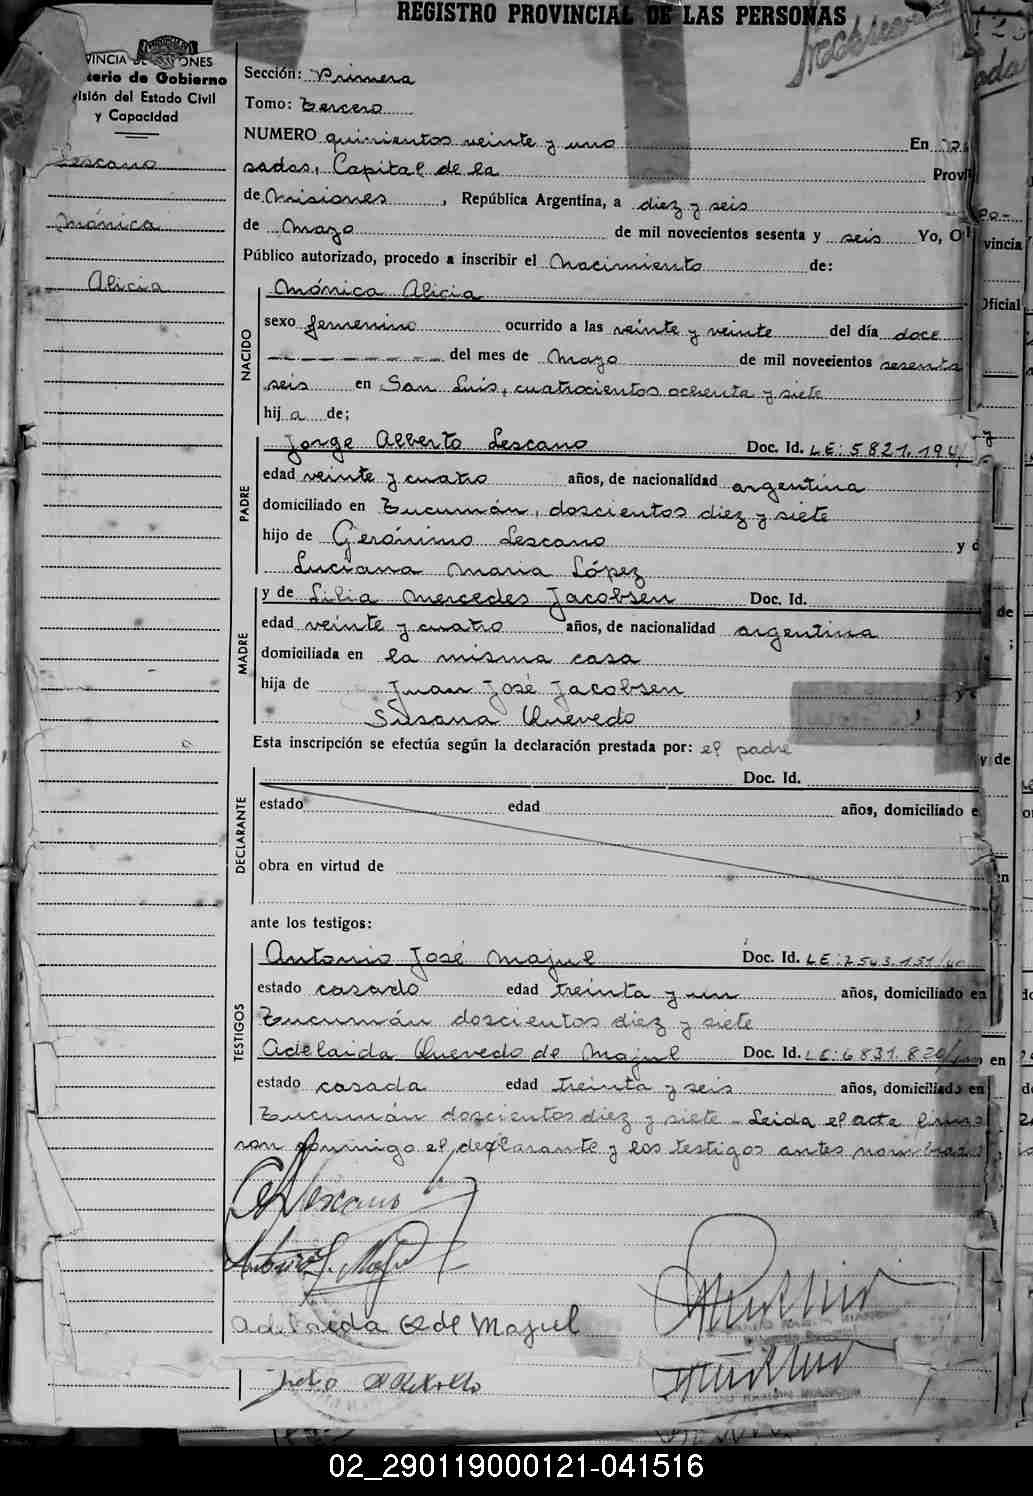 REGISTRO PROVINCIAL DE LAS PERSONAS
Gobierno
del Estado Civil
y Capacidad
Lescano
Mónica
Alicia
Sección: Primera
Tomo: Tercero
NUMERO quinientos veinte y uno En
sadas, Capital de la
de Misiones, República Argentina, a diez y seis
de Mayo de mil novecientos sesenta y seis Yo, O
Público autorizado, procedo a inscribir el Nacimiento de:
NACIDO
Mónica Alicia
sexo femenino ocurrido a las veinte y veinte del día doce
del mes de Mayo de mil novecientos sesenta
seis en San Luis, cuatrocientos ochenta y siete
hij a de;
PADRE
Jorge Alberto Lescano Doc. Id. L E: 5821.194
edad veinte y cuatro años, de nacionalidad argentina
domiciliado en Tucumán, doscientos diez y siete
hijo de Gerónimo Lescano y d
Luciana Maria López
MADRE
y de Lilia Mercedes Jacobsen Doc. Id.
edad veinte y cuatro años, de nacionalidad argentina
domiciliada en la misma casa
hija de Juan José Jacobsen
Susana Quevedo
Esta inscripción se efectúa según la declaración prestada por: el padre
DECLARANTE
Doc. Id.
estado edad años, domiciliado e
obra en virtud de
ante los testigos:
TESTIGOS
Antonio José Majul Doc. Id. LE:2543.151/
estado casado edad treinta y un años, domiciliado en
Tucumán doscientos diez y siete
Adelaida Quevedo de Majul Doc. Id. LE:6831.820/
estado casada edad treinta y seis años, domiciliado en
Tucumán doscientos diez y siete - Leida el acta firma
ron conmigo el declarante y los testigos antes nombrados
Lescano
Antonio J. Majul
Adelaida Q de Majul
vincia
Oficial
de
;
y de
en
02_290119000121-041516